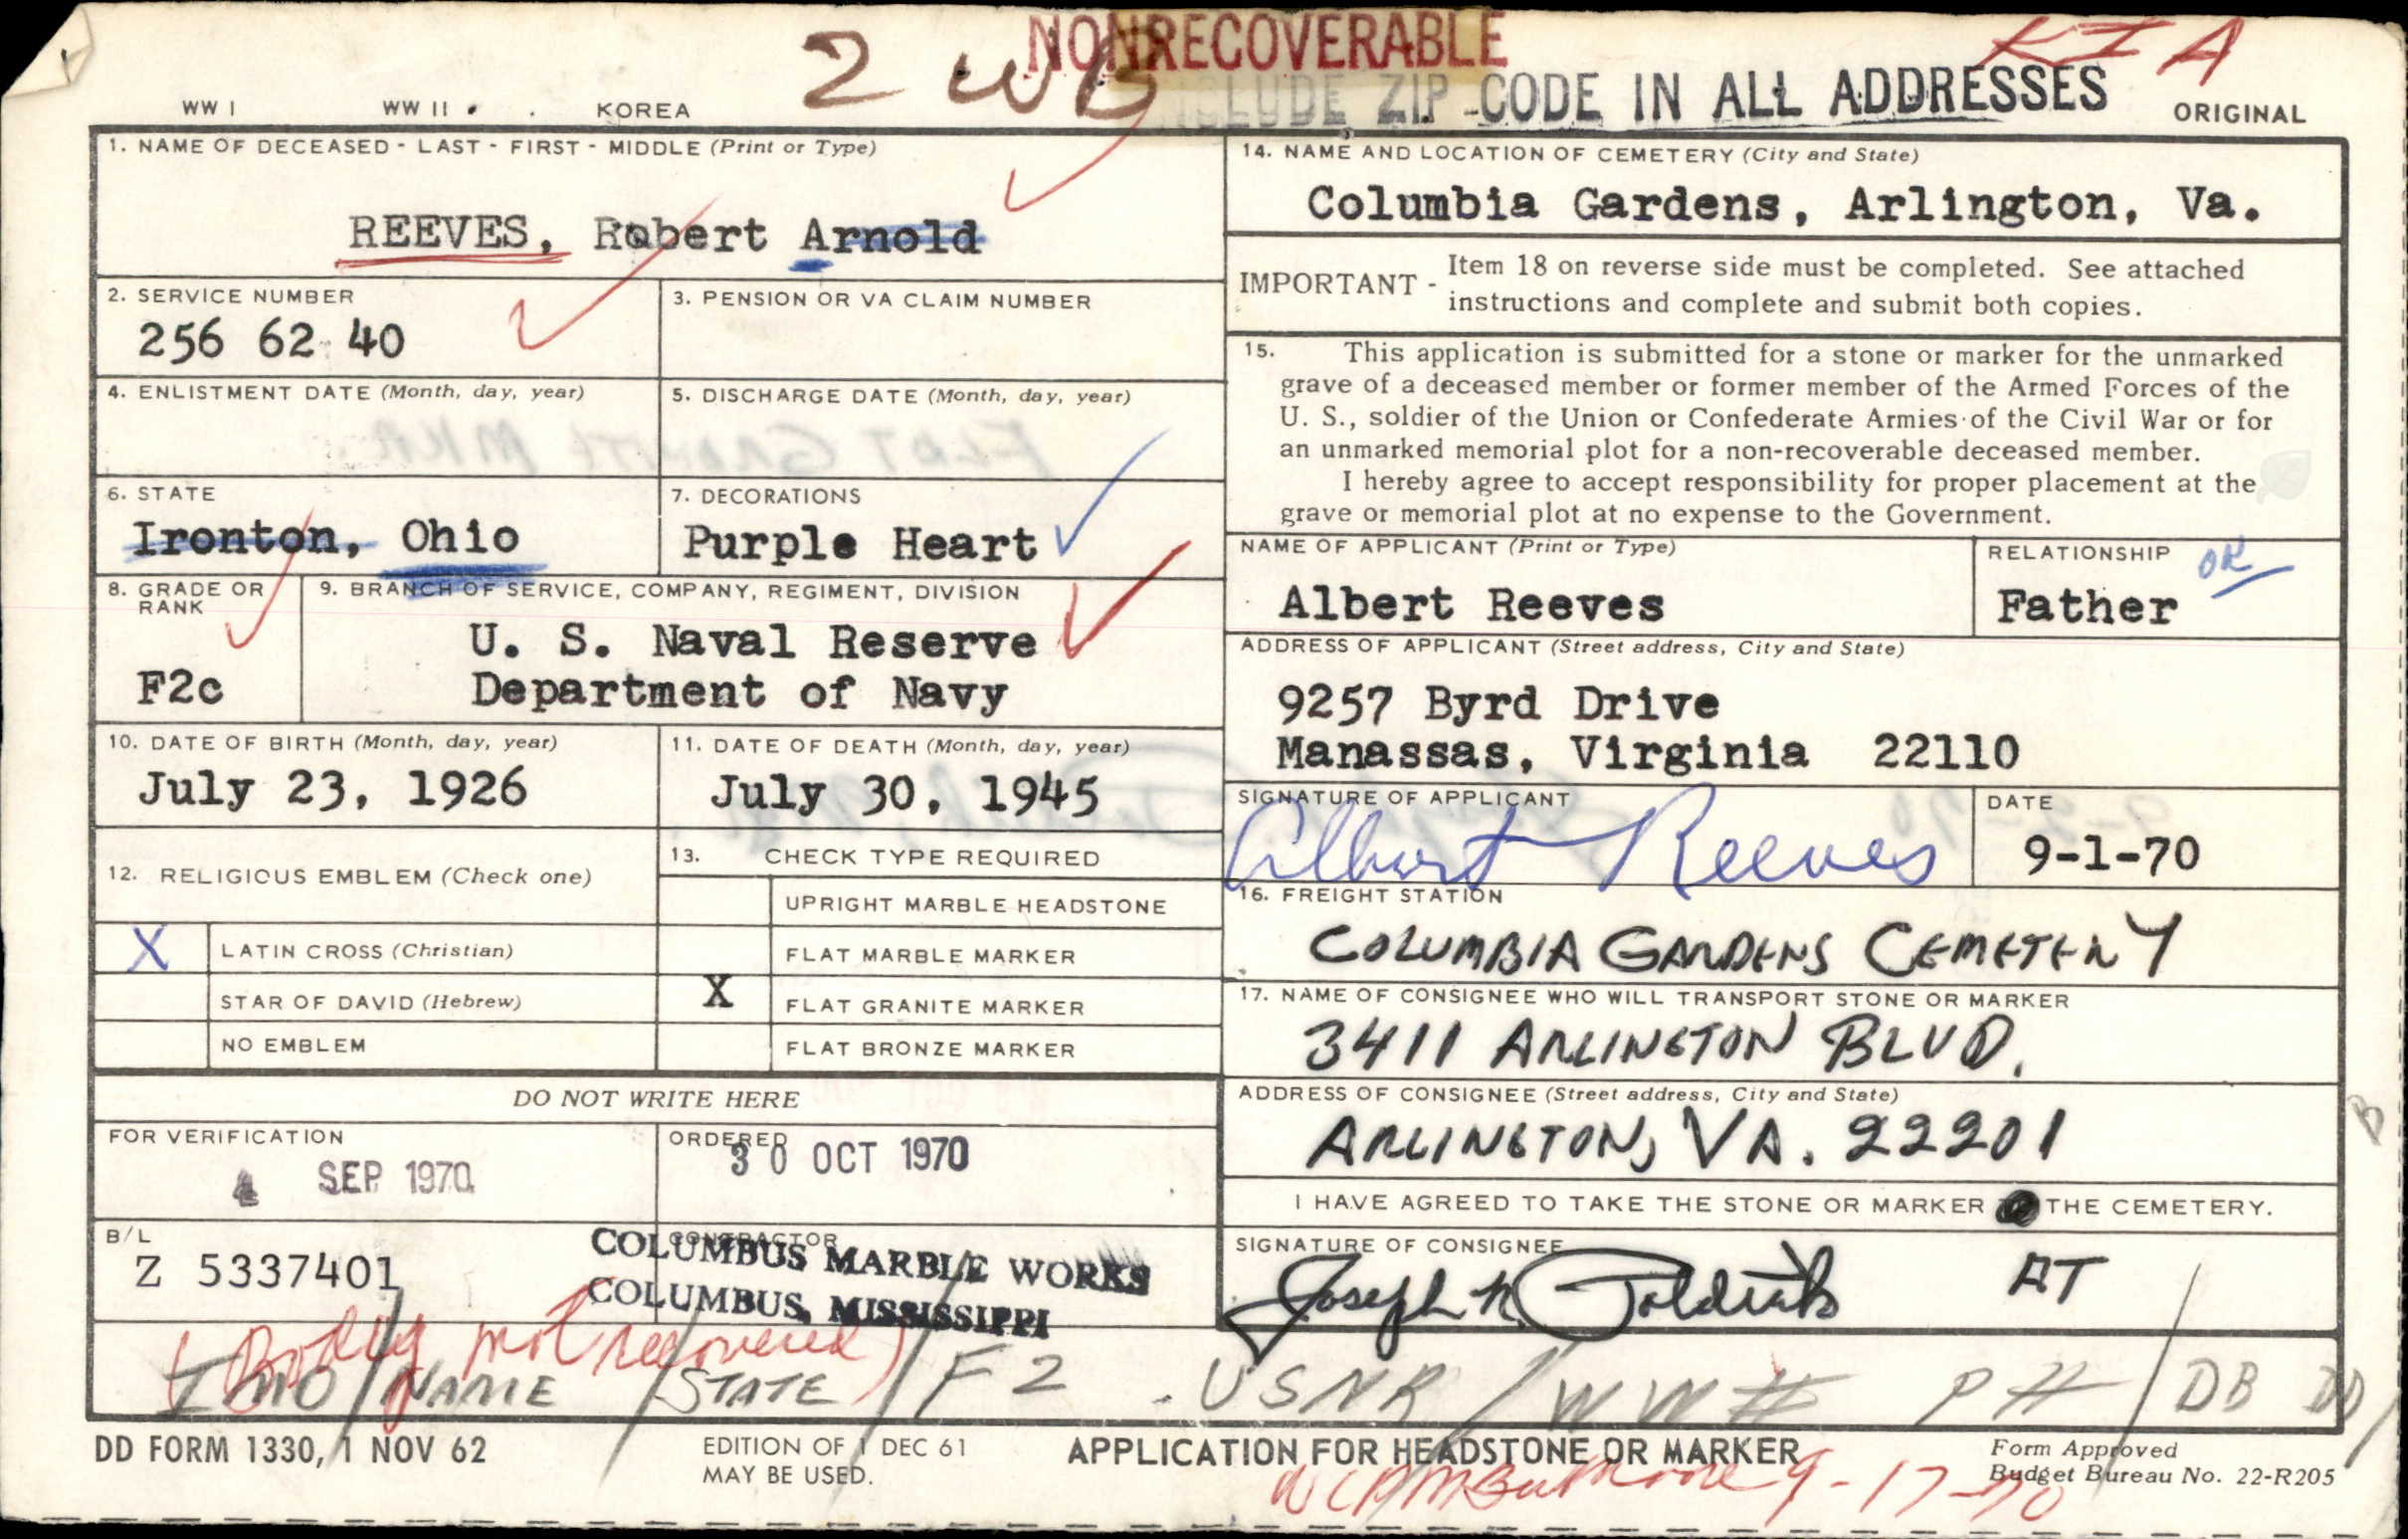 NONRECOVERABLE
2 WB
KIA
INCLUDE ZIP CODE IN ALL ADDRESSES
WW I WW II KOREA
ORIGINAL
1. NAME OF DECEASED - LAST - FIRST - MIDDLE (Print or Type)
REEVES, Robert Arnold
2. SERVICE NUMBER
256 62 40
3. PENSION OR VA CLAIM NUMBER
4. ENLISTMENT DATE (Month, day, year)
5. DISCHARGE DATE (Month, day, year)
FLAT GRANITE MKR
6. STATE
Ironton, Ohio
7. DECORATIONS
Purple Heart
8. GRADE OR
RANK
F2c
9. BRANCH OF SERVICE, COMPANY, REGIMENT, DIVISION
U. S. Naval Reserve
Department of Navy
10. DATE OF BIRTH (Month, day, year)
July 23, 1926
11. DATE OF DEATH (Month, day, year)
July 30, 1945
12. RELIGIOUS EMBLEM (Check one)
X LATIN CROSS (Christian)
STAR OF DAVID (Hebrew)
NO EMBLEM
13. CHECK TYPE REQUIRED
UPRIGHT MARBLE HEADSTONE
FLAT MARBLE MARKER
X FLAT GRANITE MARKER
FLAT BRONZE MARKER
DO NOT WRITE HERE
FOR VERIFICATION
4 SEP 1970
ORDERED
30 OCT 1970
B/L
Z 5337401
CONTRACTOR
COLUMBUS MARBLE WORKS
COLUMBUS, MISSISSIPPI
14. NAME AND LOCATION OF CEMETERY (City and State)
Columbia Gardens, Arlington, Va.
IMPORTANT - Item 18 on reverse side must be completed. See attached
instructions and complete and submit both copies.
15. This application is submitted for a stone or marker for the unmarked
grave of a deceased member or former member of the Armed Forces of the
U. S., soldier of the Union or Confederate Armies of the Civil War or for
an unmarked memorial plot for a non-recoverable deceased member.
I hereby agree to accept responsibility for proper placement at the
grave or memorial plot at no expense to the Government.
NAME OF APPLICANT (Print or Type)
Albert Reeves
RELATIONSHIP OK
Father
ADDRESS OF APPLICANT (Street address, City and State)
9257 Byrd Drive
Manassas, Virginia 22110
SIGNATURE OF APPLICANT
Albert Reeves
DATE
9-1-70
16. FREIGHT STATION
COLUMBIA GARDENS CEMETERY
17. NAME OF CONSIGNEE WHO WILL TRANSPORT STONE OR MARKER
3411 ARLINGTON BLVD.
ADDRESS OF CONSIGNEE (Street address, City and State)
ARLINGTON, VA. 22201
B
I HAVE AGREED TO TAKE THE STONE OR MARKER THE CEMETERY.
SIGNATURE OF CONSIGNEE
AT
(Body not recovered)
IMO / NAME / STATE / F2 USNR / WW II PH / DB DD
DD FORM 1330, 1 NOV 62
EDITION OF 1 DEC 61
MAY BE USED.
APPLICATION FOR HEADSTONE OR MARKER
9-17-70
Form Approved
Budget Bureau No. 22-R205